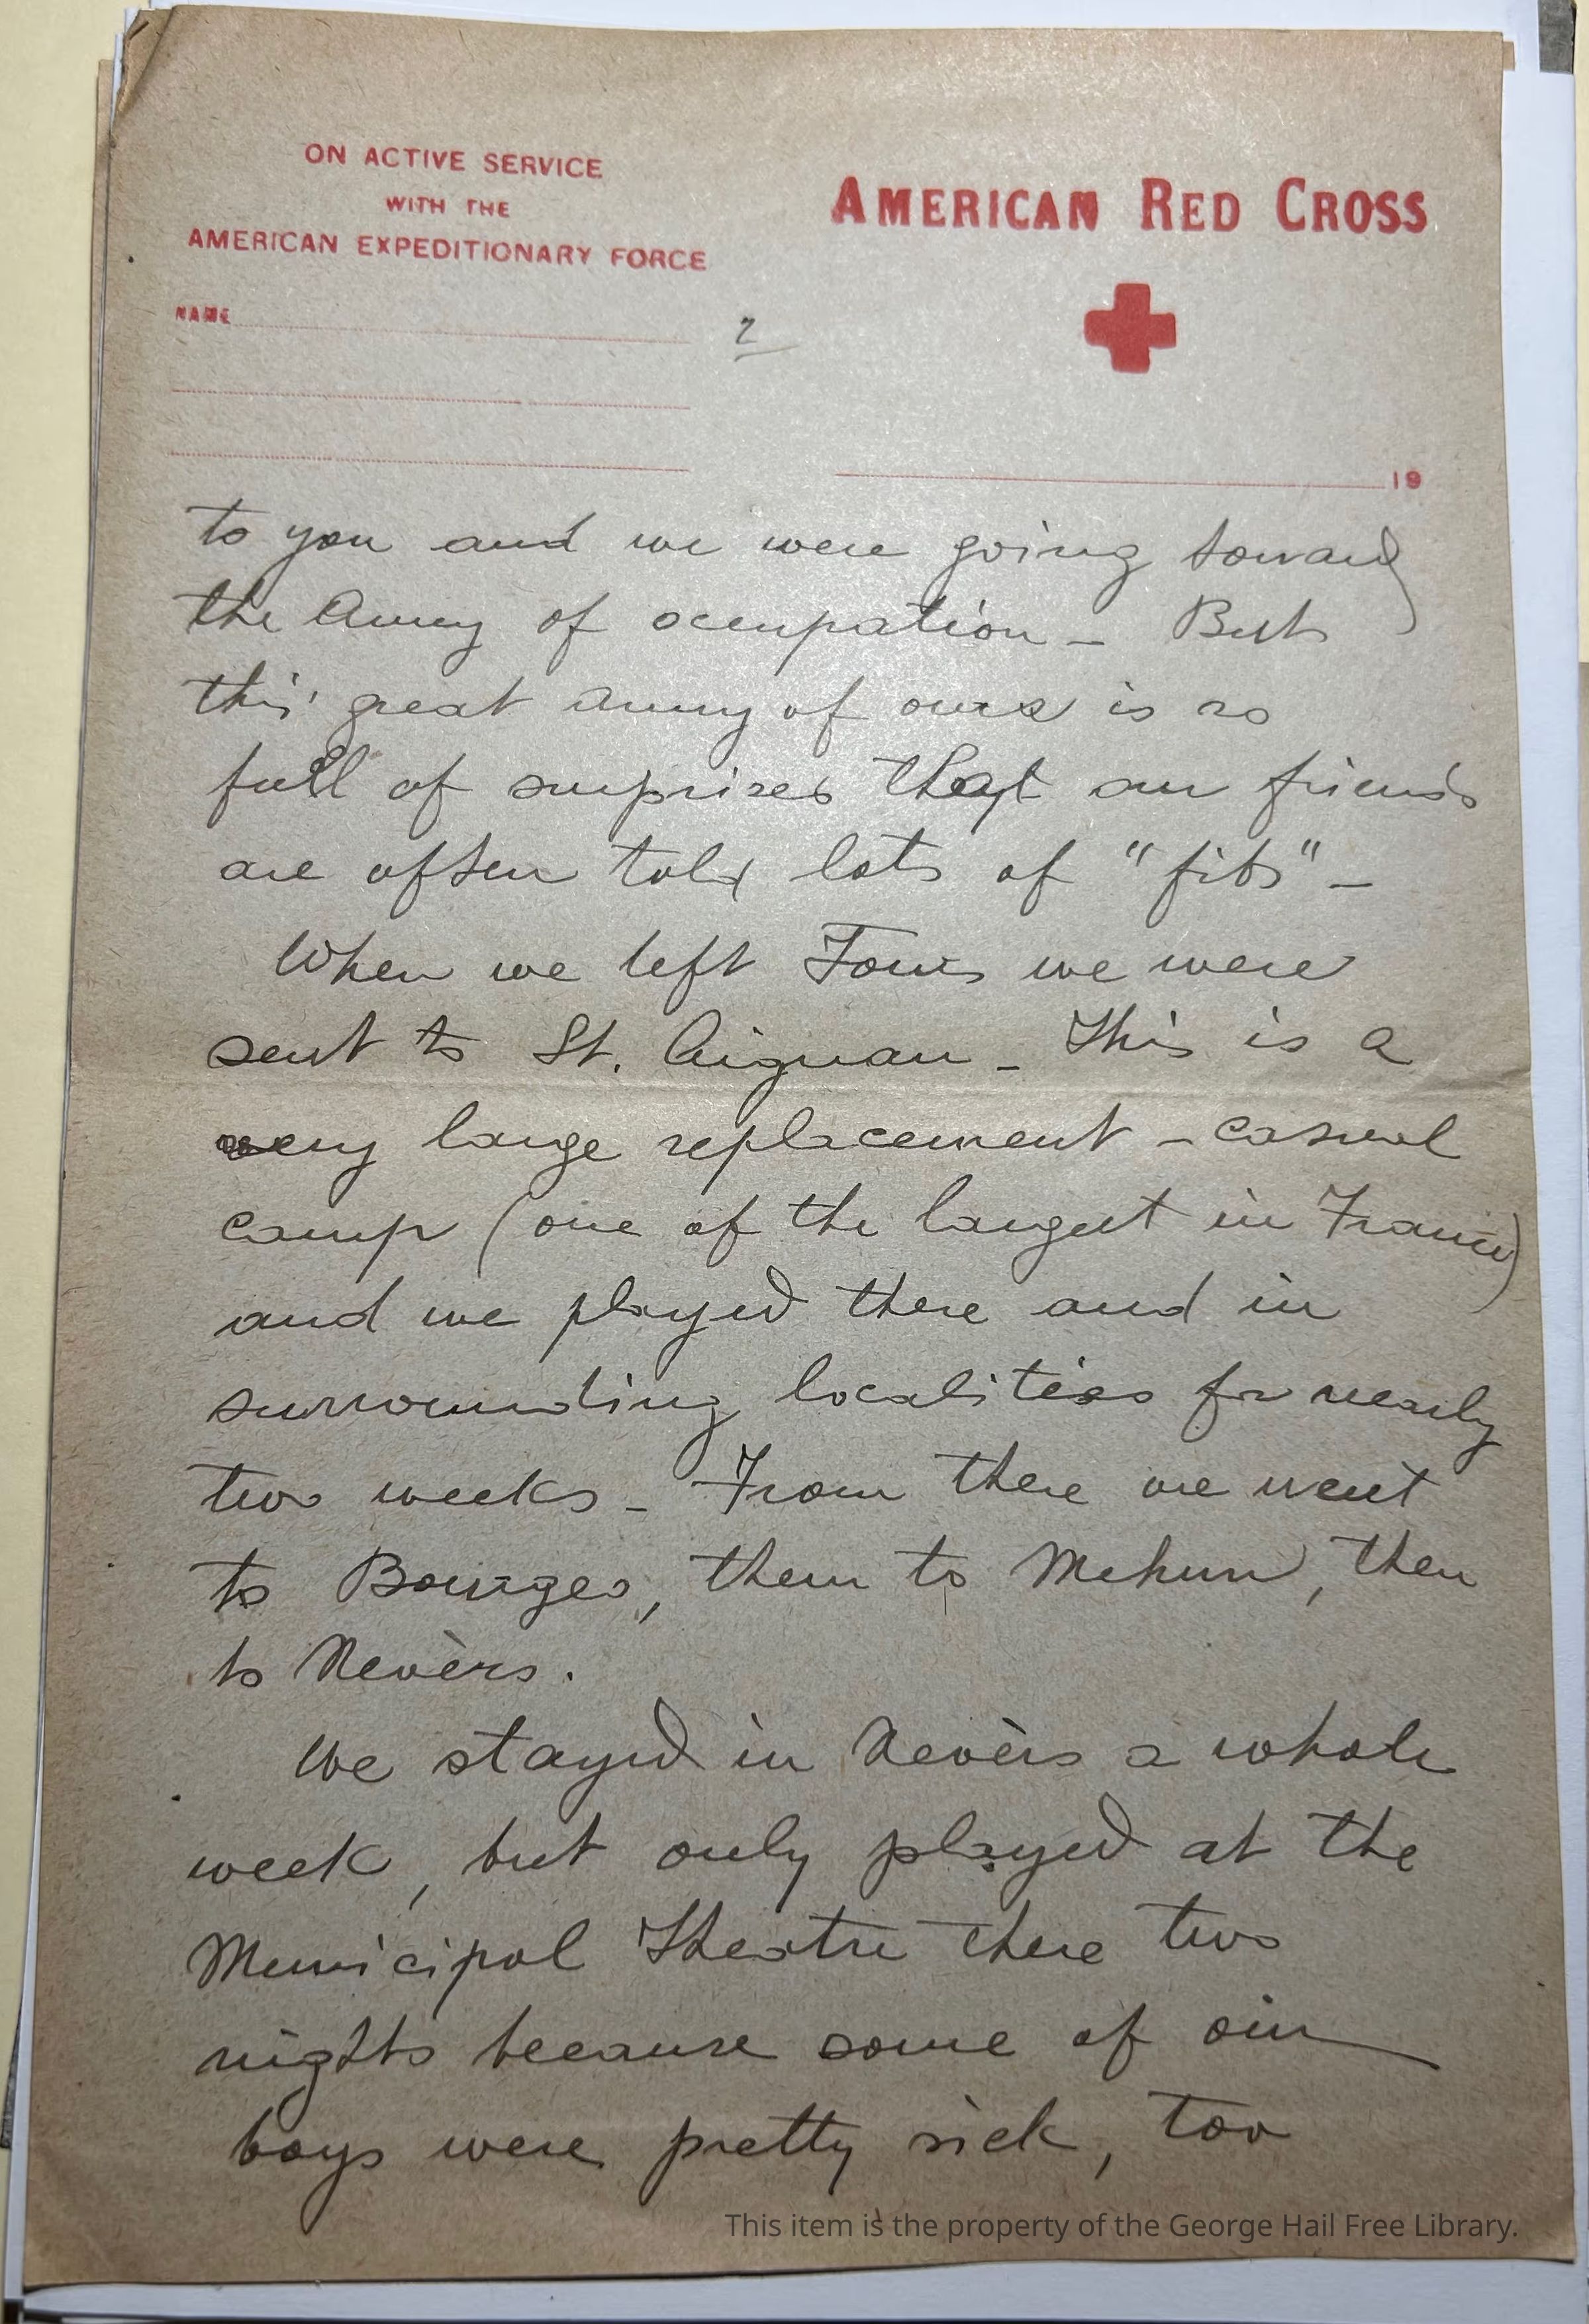 ON ACTIVE SERVICE
WITH THE
AMERICAN EXPEDITIONARY FORCE
AMERICAN RED CROSS
NAME
2
19
to you and we were going toward
the Army of occupation – But
this great army of ours is so
full of surprises that our friends
are often told lots of "fibs" –
When we left Tours we were
sent to St. Aignan – This is a
very large replacement – casual
camp (one of the largest in France)
and we played there and in
surrounding localities for nearly
two weeks – From there we went
to Bourges, then to Mehun, then
to Nevèrs.
We stayed in Nevèrs a whole
week, but only played at the
Municipal Theatre there two
nights because some of our
boys were pretty sick, too
This item is the property of the George Hail Free Library.